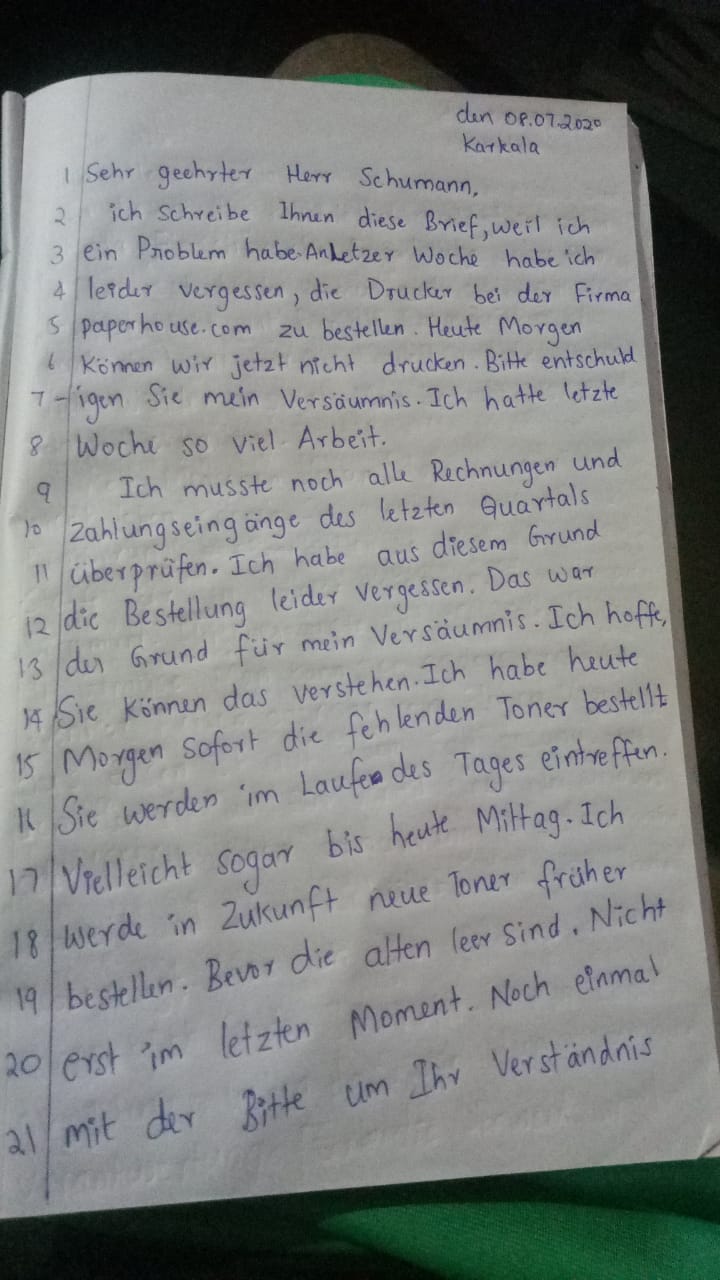 den 08.07.2020
Karkala
1 Sehr geehrter Herr Schumann,
2 ich schreibe Ihnen diese Brief, weil ich
3 ein Problem habe. An letzer Woche habe ich
4 leider vergessen, die Drucker bei der Firma
5 paperhouse.com zu bestellen. Heute Morgen
6 Können wir jetzt nicht drucken. Bitte entschuld
7 -igen Sie mein Versäumnis. Ich hatte letzte
8 Woche so viel Arbeit.
9 Ich musste noch alle Rechnungen und
10 Zahlungseingänge des letzten Quartals
11 überprüfen. Ich habe aus diesem Grund
12 die Bestellung leider vergessen. Das war
13 der Grund für mein Versäumnis. Ich hoffe,
14 Sie können das verstehen. Ich habe heute
15 Morgen sofort die fehlenden Toner bestellt
16 Sie werden im Laufe des Tages eintreffen.
17 Vielleicht sogar bis heute Mittag. Ich
18 werde in Zukunft neue Toner früher
19 bestellen. Bevor die alten leer sind. Nicht
20 erst im letzten Moment. Noch einmal
21 mit der Bitte um Ihr Verständnis